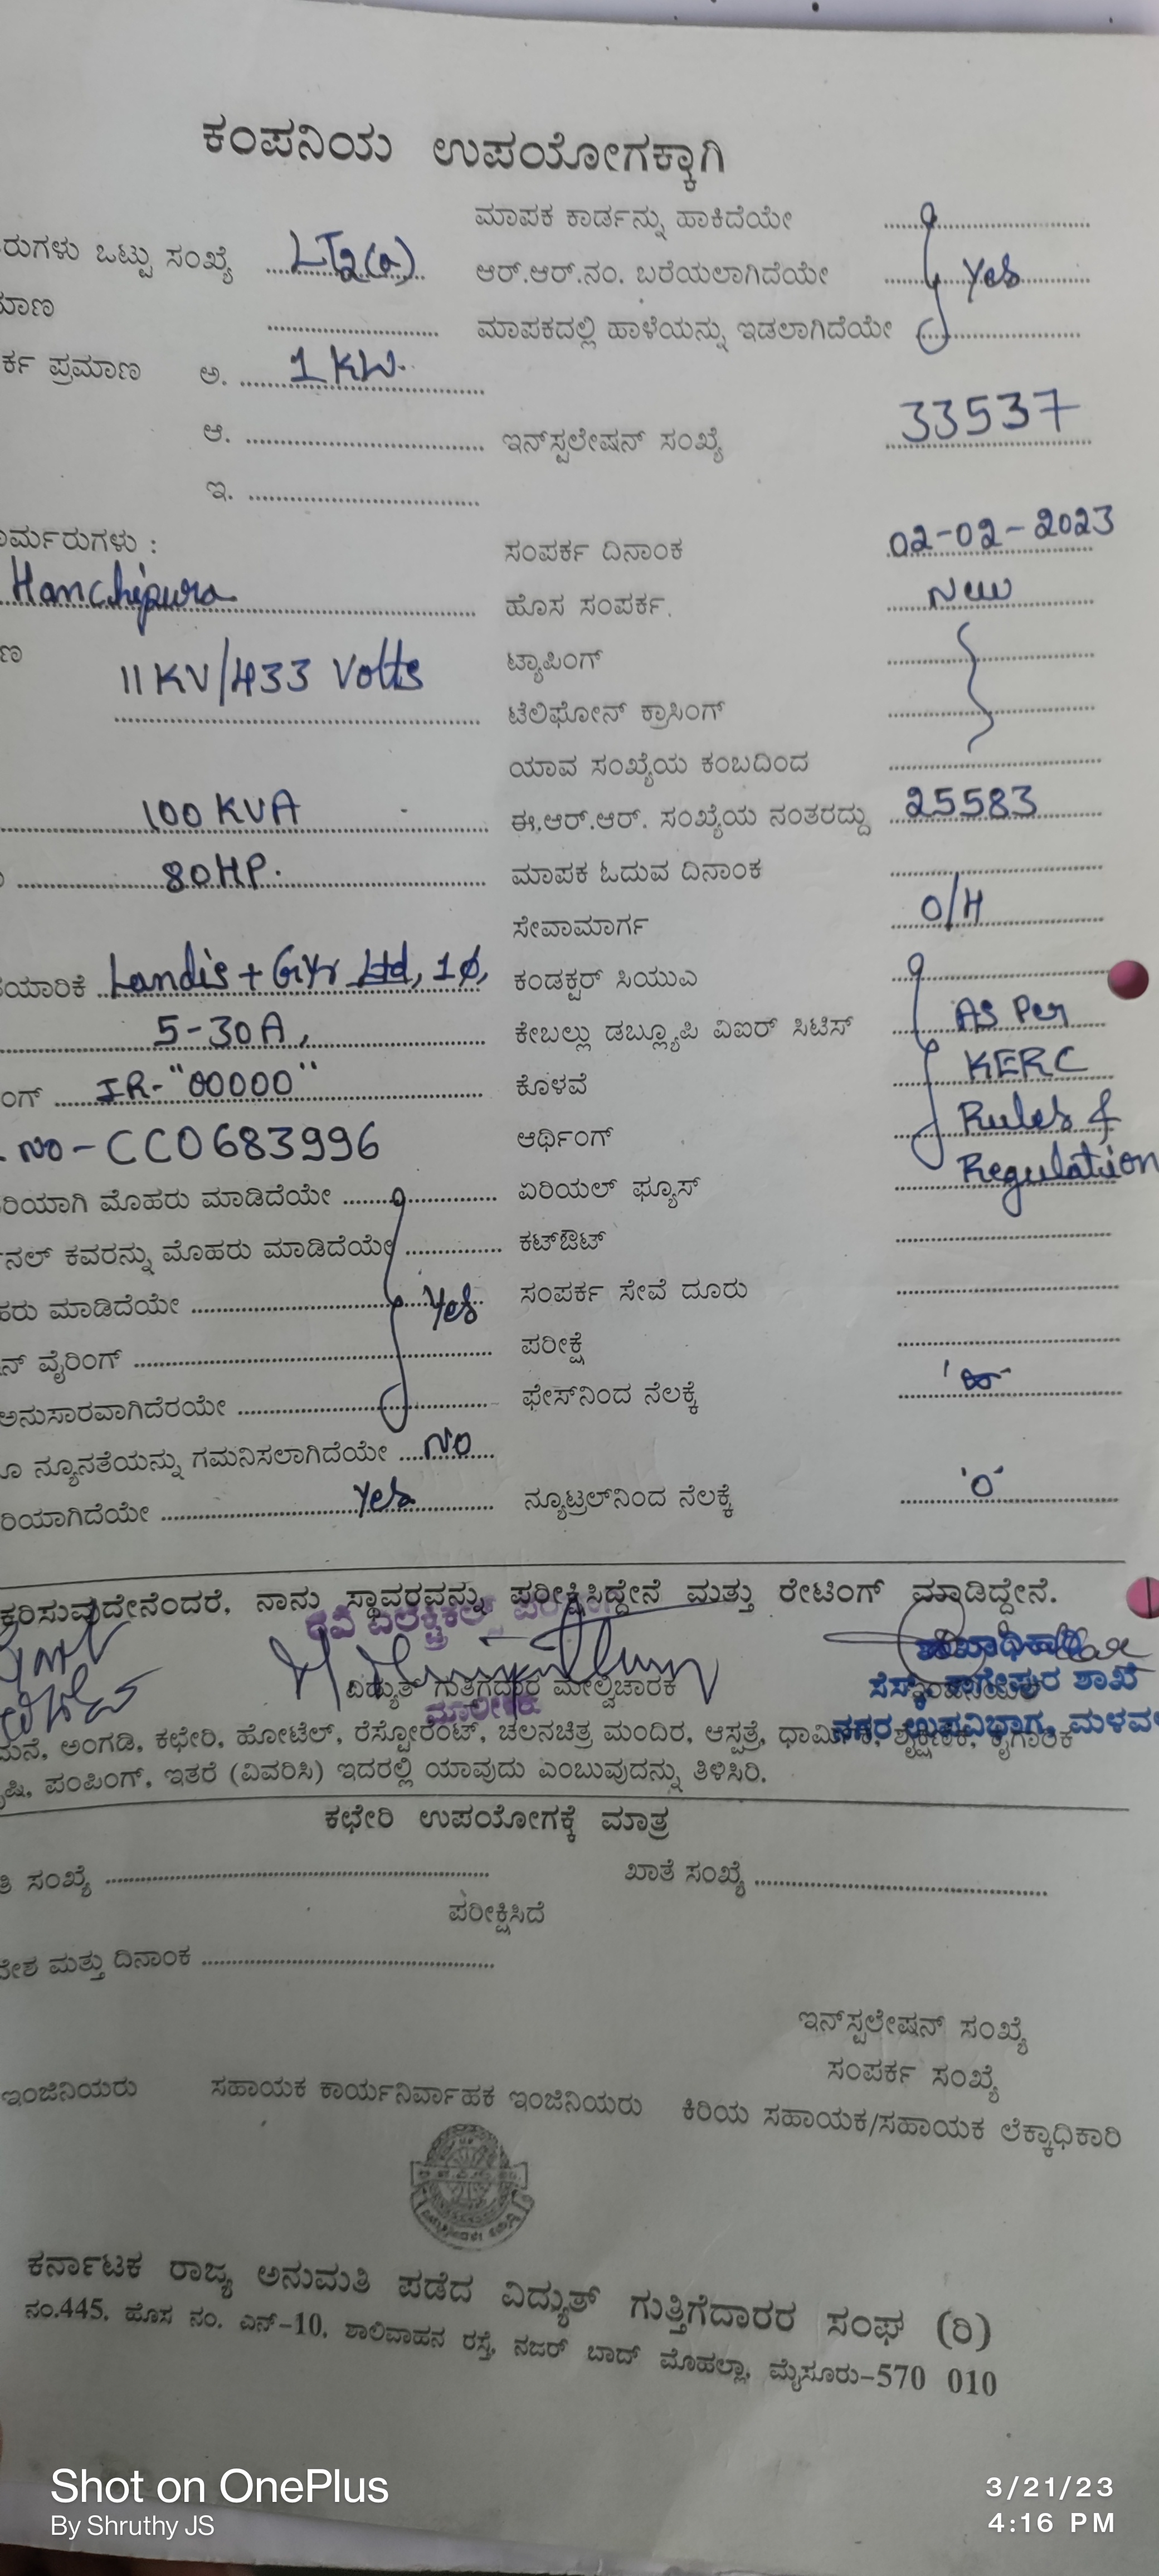 ಕಂಪನಿಯ ಉಪಯೋಗಕ್ಕಾಗಿ
ಮಾಪಕ ಕಾರ್ಡನ್ನು ಹಾಕಿದೆಯೇ
ರುಗಳು ಒಟ್ಟು ಸಂಖ್ಯೆ LT2(a) ಆರ್.ಆರ್.ನಂ. ಬರೆಯಲಾಗಿದೆಯೇ Yes
ಮಾಣ ಮಾಪಕದಲ್ಲಿ ಹಾಳೆಯನ್ನು ಇಡಲಾಗಿದೆಯೇ
ರ್ಕ ಪ್ರಮಾಣ ಅ. 1 KW.
ಆ. ಇನ್‌ಸ್ಟಲೇಷನ್ ಸಂಖ್ಯೆ 33537
ಇ.
ರ್ಮರುಗಳು : ಸಂಪರ್ಕ ದಿನಾಂಕ 02-02-2023
Hanchipura ಹೊಸ ಸಂಪರ್ಕ. New
ಣ 11KV/433 Volts ಟ್ಯಾಪಿಂಗ್
ಟೆಲಿಫೋನ್ ಕ್ರಾಸಿಂಗ್
ಯಾವ ಸಂಖ್ಯೆಯ ಕಂಬದಿಂದ
100 KVA ಈ.ಆರ್.ಆರ್. ಸಂಖ್ಯೆಯ ನಂತರದ್ದು 25583
80HP. ಮಾಪಕ ಓದುವ ದಿನಾಂಕ
ಸೇವಾಮಾರ್ಗ O/H
ಯಾರಿಕೆ Landis + Gyr Ltd, 1Ø, ಕಂಡಕ್ಟರ್ ಸಿಯುಎ
5-30A, ಕೇಬಲ್ಲು ಡಬ್ಲ್ಯೂಪಿ ವಿಐರ್ ಸಿಟಿಸ್ As Per
ಂಗ್ IR-"00000" ಕೊಳವೆ KERC
No-CC0683996 ಆರ್ಥಿಂಗ್ Rules &
ರಿಯಾಗಿ ಮೊಹರು ಮಾಡಿದೆಯೇ ಏರಿಯಲ್ ಫ್ಯೂಸ್ Regulation
ನಲ್ ಕವರನ್ನು ಮೊಹರು ಮಾಡಿದೆಯೇ ಕಟ್‌ಔಟ್
ಹರು ಮಾಡಿದೆಯೇ Yes ಸಂಪರ್ಕ ಸೇವೆ ದೂರು
ನ್ ವೈರಿಂಗ್ ಪರೀಕ್ಷೆ
ಅನುಸಾರವಾಗಿದೆರಯೇ ಫೇಸ್‌ನಿಂದ ನೆಲಕ್ಕೆ
ನ್ಯೂನತೆಯನ್ನು ಗಮನಿಸಲಾಗಿದೆಯೇ No
ರಿಯಾಗಿದೆಯೇ Yes ನ್ಯೂಟ್ರಲ್‌ನಿಂದ ನೆಲಕ್ಕೆ 'O'
ಕರಿಸುವುದೇನೆಂದರೆ, ನಾನು ಸ್ಥಾವರವನ್ನು ಪರೀಕ್ಷಿಸಿದ್ದೇನೆ ಮತ್ತು ರೇಟಿಂಗ್ ಮಾಡಿದ್ದೇನೆ.
ಶಾಖಾಧಿಕಾರಿ
ವಿದ್ಯುತ್ ಗುತ್ತಿಗೆದಾರ ಮೇಲ್ವಿಚಾರಕ
ಮಾಲೀಕರು
ನಗರ ಉಪವಿಭಾಗ, ಮಳವ
ಮನೆ, ಅಂಗಡಿ, ಕಛೇರಿ, ಹೋಟೆಲ್, ರೆಸ್ಟೋರೆಂಟ್, ಚಲನಚಿತ್ರ ಮಂದಿರ, ಆಸ್ಪತ್ರೆ, ಧಾರ್ಮಿಕ, ಶೈಕ್ಷಣಿಕ, ಕೈಗಾರಿಕೆ
ಷಿ, ಪಂಪಿಂಗ್, ಇತರೆ (ವಿವರಿಸಿ) ಇದರಲ್ಲಿ ಯಾವುದು ಎಂಬುವುದನ್ನು ತಿಳಿಸಿರಿ.
ಕಛೇರಿ ಉಪಯೋಗಕ್ಕೆ ಮಾತ್ರ
ತಿ ಸಂಖ್ಯೆ ಖಾತೆ ಸಂಖ್ಯೆ
ಪರೀಕ್ಷಿಸಿದೆ
ದೇಶ ಮತ್ತು ದಿನಾಂಕ
ಇನ್‌ಸ್ಟಲೇಷನ್ ಸಂಖ್ಯೆ
ಸಂಪರ್ಕ ಸಂಖ್ಯೆ
ಇಂಜಿನಿಯರು ಸಹಾಯಕ ಕಾರ್ಯನಿರ್ವಾಹಕ ಇಂಜಿನಿಯರು ಕಿರಿಯ ಸಹಾಯಕ/ಸಹಾಯಕ ಲೆಕ್ಕಾಧಿಕಾರಿ
ಕರ್ನಾಟಕ ರಾಜ್ಯ ಅನುಮತಿ ಪಡೆದ ವಿದ್ಯುತ್ ಗುತ್ತಿಗೆದಾರರ ಸಂಘ (ರಿ)
ನಂ.445, ಹೊಸ ನಂ. ಎನ್-10, ಶಾಲಿವಾಹನ ರಸ್ತೆ, ನಜರ್ ಬಾದ್ ಮೊಹಲ್ಲಾ, ಮೈಸೂರು-570 010
Shot on OnePlus
By Shruthy JS
3/21/23
4:16 PM